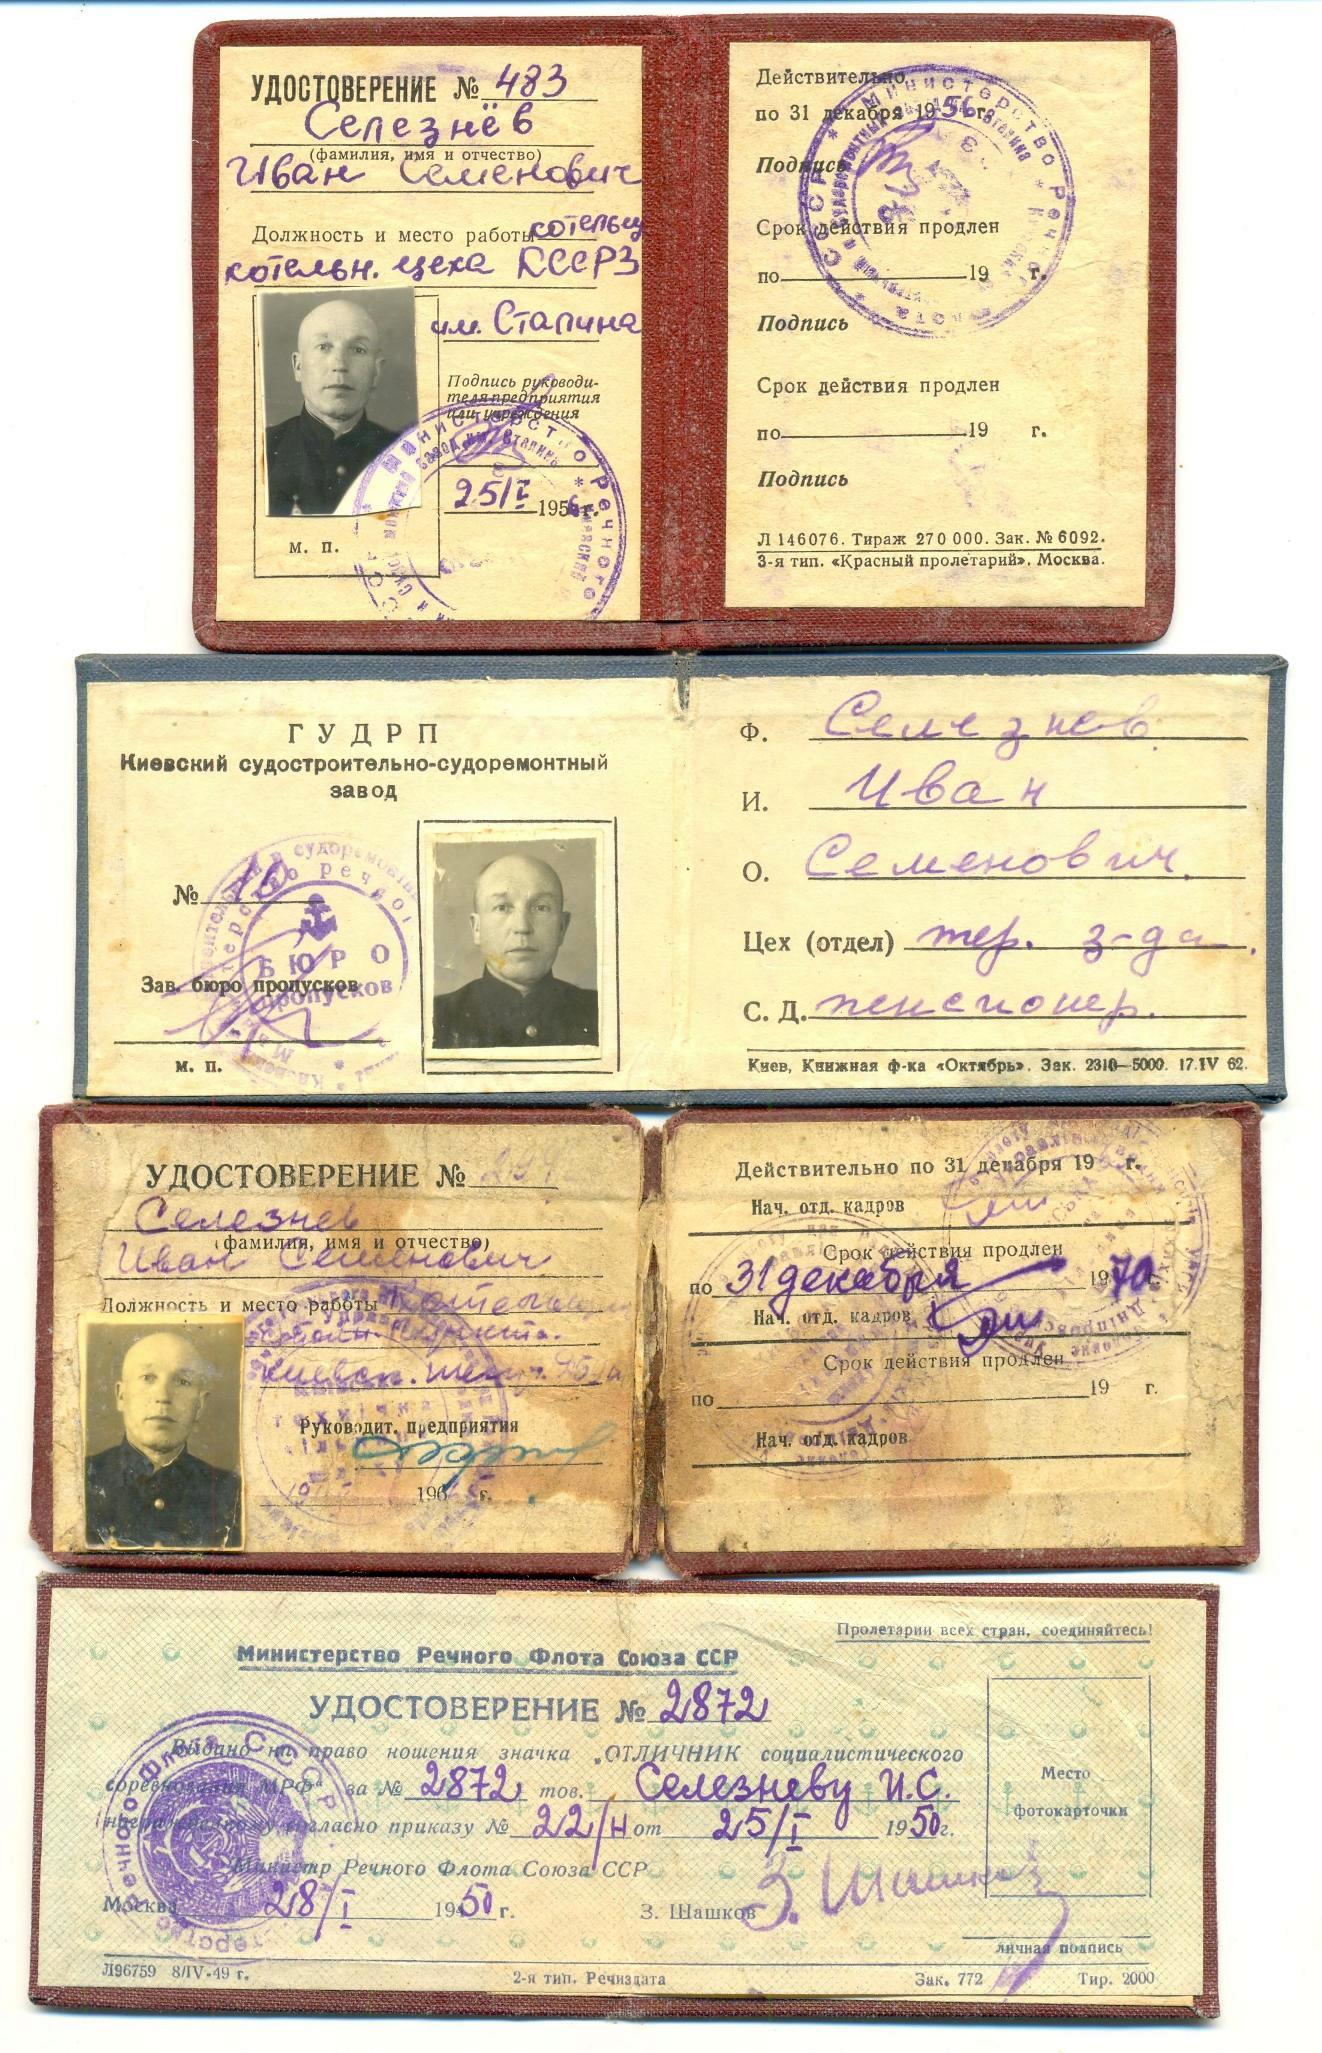 УДОСТОВЕРЕНИЕ № 483
Селезнёв
(фамилия, имя и отчество)
Иван Семенович
Должность и место работы котельщ
котельн. цеха КССРЗ
им. Сталина
Подпись руководи-
теля предприятия
или учреждения
25/I 1956 г.
м. п.
Действительно
по 31 декабря 1956 г.
Подпись
Срок действия продлен
по 19 г.
Подпись
Срок действия продлен
по 19 г.
Подпись
Л 146076. Тираж 270 000. Зак. № 6092.
3-я тип. «Красный пролетарий». Москва.
ГУДРП
Киевский судостроительно-судоремонтный
завод
№
БЮРО
пропусков
Зав. бюро пропусков
м. п.
Ф. Селезнев
И. Иван
О. Семенович.
Цех (отдел) тер. з-да.
С. Д. пенсионер.
Киев, Книжная ф-ка «Октябрь». Зак. 2310—5000. 17.IV 62.
УДОСТОВЕРЕНИЕ №
Селезнев
(фамилия, имя и отчество)
Иван Семенович
Должность и место работы
Руководит. предприятия
196 г.
Действительно по 31 декабря 19 г.
Нач. отд. кадров
Срок действия продлен
по 31 декабря 1970 г.
Нач. отд. кадров
Срок действия продлен
по 19 г.
Нач. отд. кадров
Пролетарии всех стран, соединяйтесь!
Министерство Речного Флота Союза ССР
УДОСТОВЕРЕНИЕ № 2872
Выдано на право ношения значка „ОТЛИЧНИК социалистического
соревнования МРФ“ за № 2872 тов. Селезневу И.С.
награжденному согласно приказу № 22/н от 25/I 1950 г.
Министр Речного Флота Союза ССР
Москва 28/I 1950 г. З. Шашков З. Шашков
Место
фотокарточки
личная подпись
Л96759 8/IV-49 г. 2-я тип. Речиздата Зак. 772 Тир. 2000